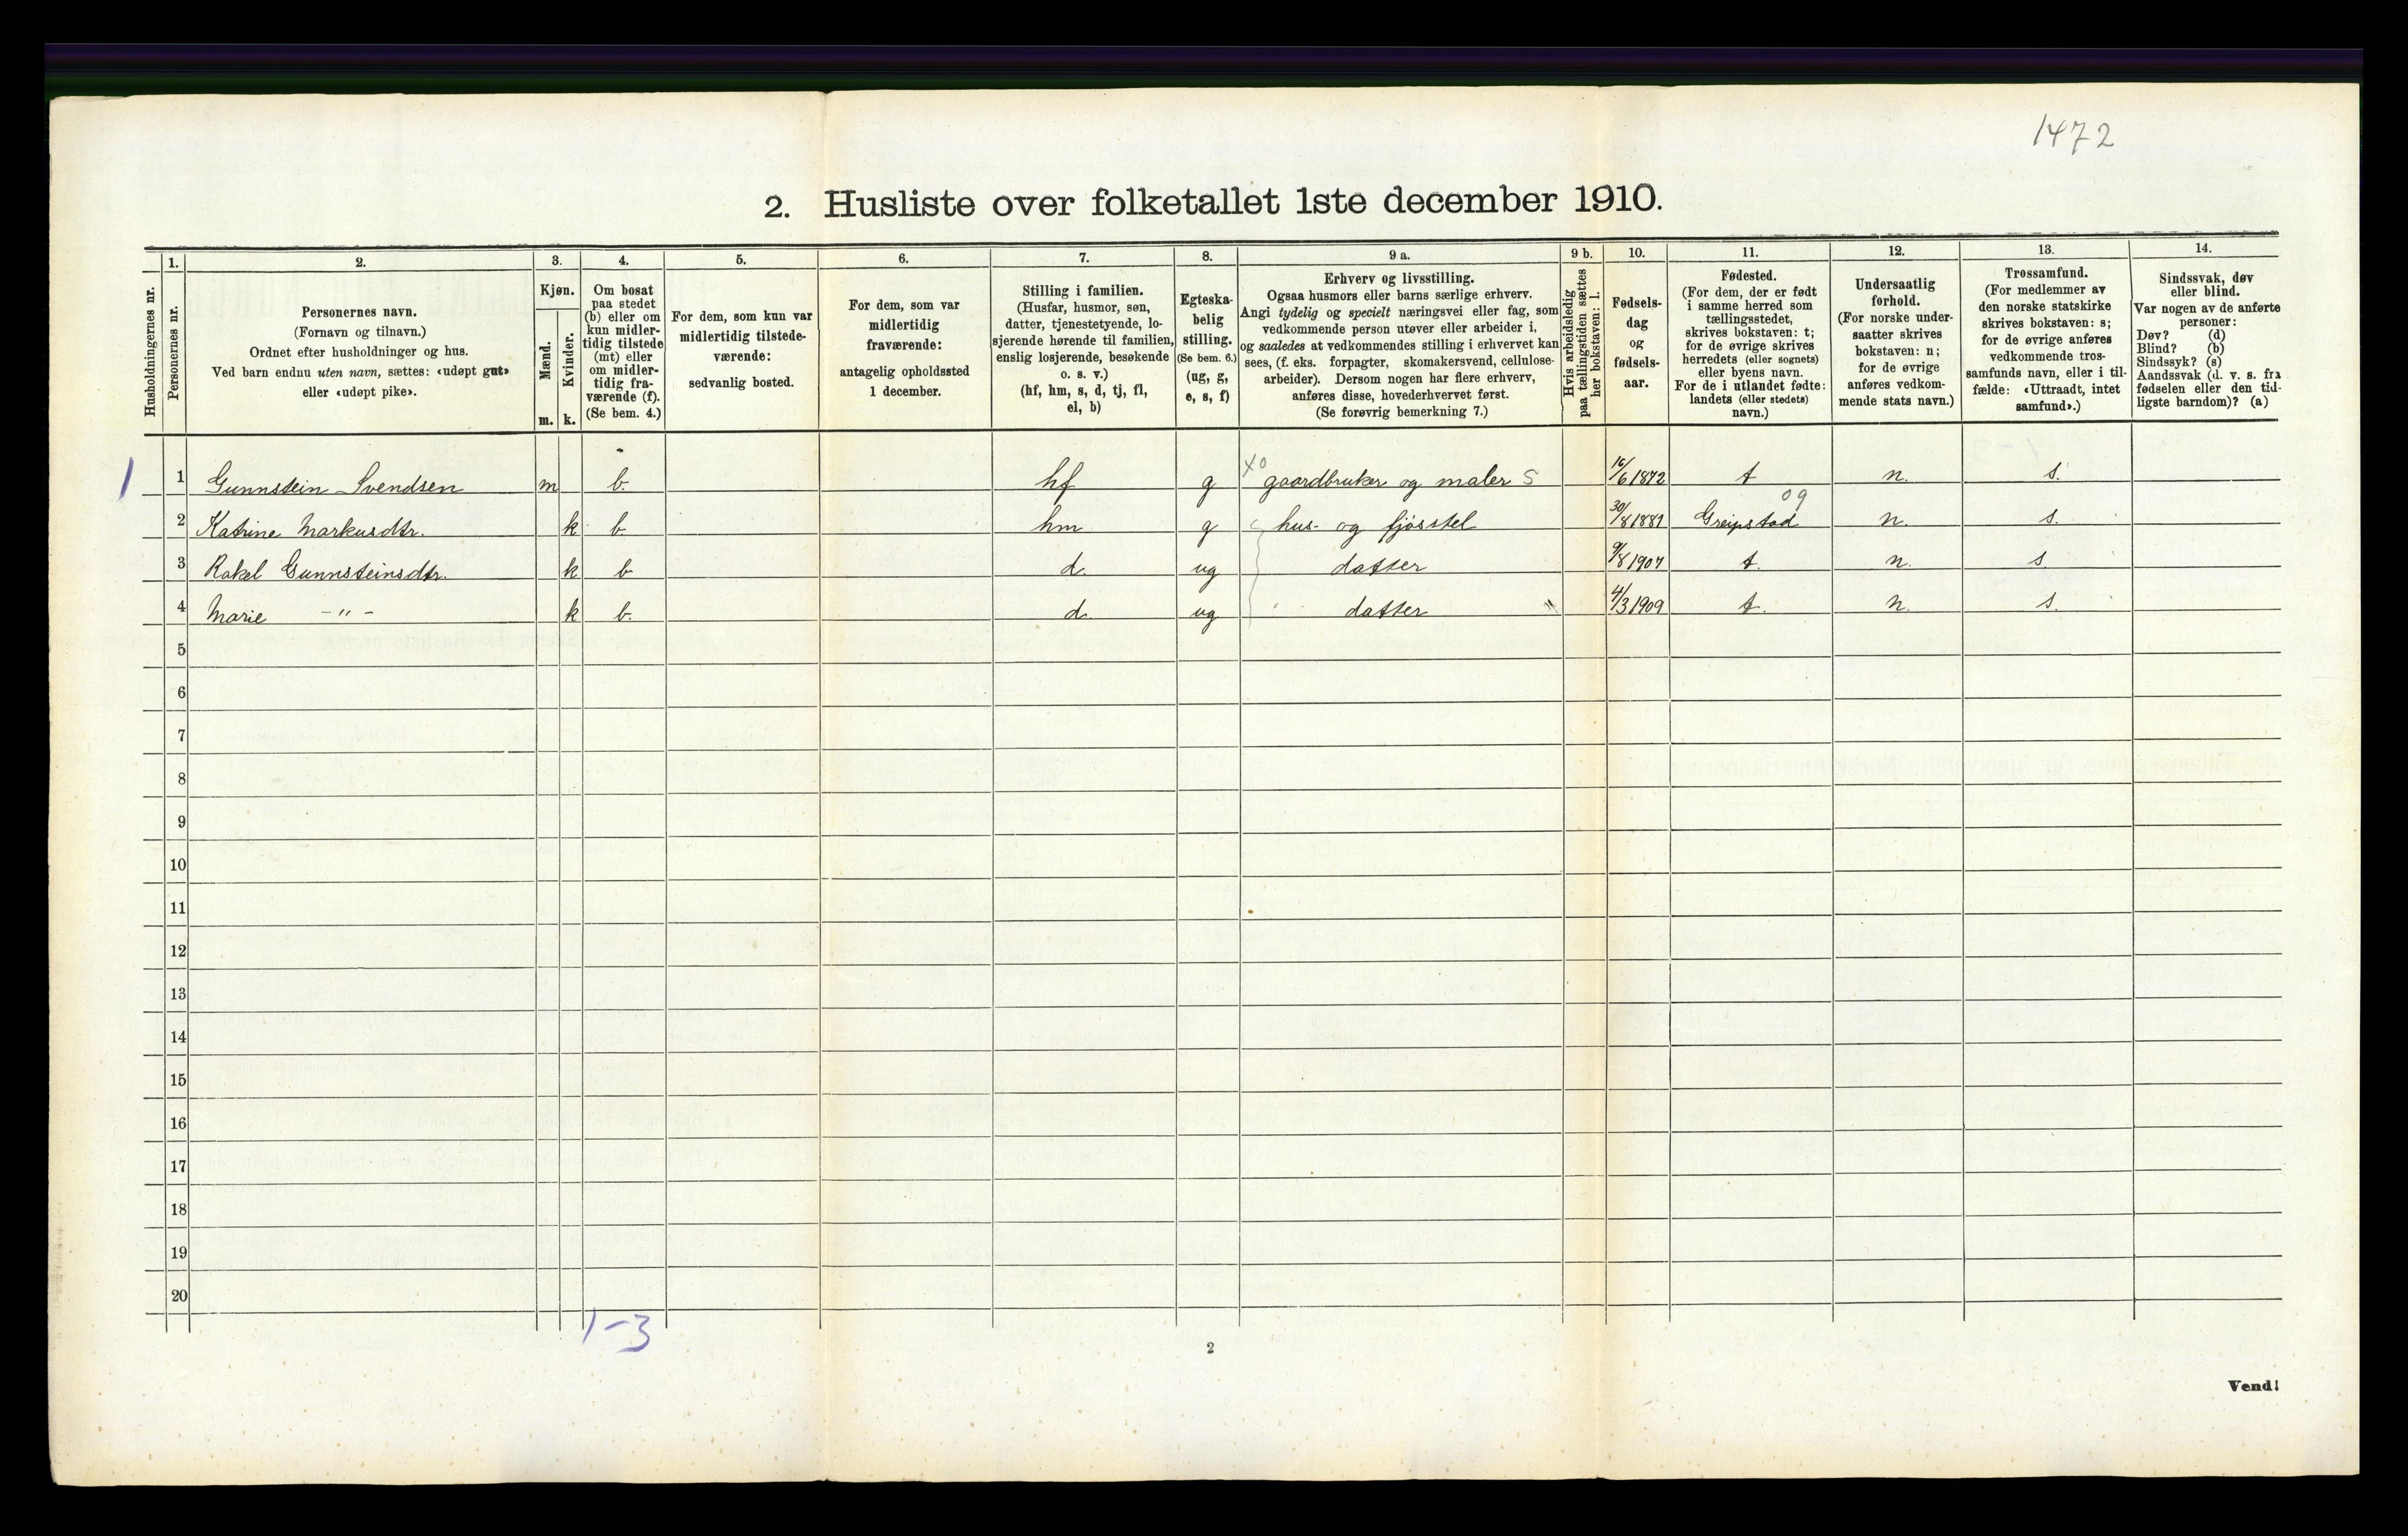 1472
2. Husliste over folketallet 1ste december 1910.
Husholdningernes nr.
1.
Personernes nr.
2.
Personernes navn.
(Fornavn og tilnavn.)
Ordnet efter husholdninger og hus.
Ved barn endnu uten navn, sættes: «udøpt gut»
eller «udøpt pike».
3.
Kjøn.
Mænd.
m.
Kvinder.
k.
4.
Om bosat
paa stedet
(b) eller om
kun midler-
tidig tilstede
(mt) eller
om midler-
tidig fra-
værende (f).
(Se bem. 4.)
5.
For dem, som kun var
midlertidig tilstede-
værende:
sedvanlig bosted.
6.
For dem, som var
midlertidig
fraværende:
antagelig opholdssted
1 december.
7.
Stilling i familien.
(Husfar, husmor, søn,
datter, tjenestetyende, lo-
sjerende hørende til familien,
enslig losjerende, besøkende
o. s. v.)
(hf, hm, s, d, tj, fl,
el, b)
8.
Egteska-
belig
stilling.
(Se bem. 6.)
(ug, g,
e, s, f)
9 a.
Erhverv og livsstilling.
Ogsaa husmors eller barns særlige erhverv.
Angi tydelig og specielt næringsvei eller fag, som
vedkommende person utøver eller arbeider i,
og saaledes at vedkommendes stilling i erhvervet kan
sees, (f. eks. forpagter, skomakersvend, cellulose-
arbeider). Dersom nogen har flere erhverv,
anføres disse, hovederhvervet først.
(Se forøvrig bemerkning 7.)
9 b.
Hvis arbeidsledig
paa tællingstiden sættes
her bokstaven: l.
10.
Fødsels-
dag
og
fødsels-
aar.
11.
Fødested.
(For dem, der er født
i samme herred som
tællingsstedet,
skrives bokstaven: t;
for de øvrige skrives
herredets (eller sognets)
eller byens navn.
For de i utlandet fødte:
landets (eller stedets)
navn.)
12.
Undersaatlig
forhold.
(For norske under-
saatter skrives
bokstaven: n;
for de øvrige
anføres vedkom-
mende stats navn.)
13.
Trossamfund.
(For medlemmer av
den norske statskirke
skrives bokstaven: s;
for de øvrige anføres
vedkommende tros-
samfunds navn, eller i til-
fælde: «Uttraadt, intet
samfund».)
14.
Sindssvak, døv
eller blind.
Var nogen av de anførte
personer:
Døv? (d)
Blind? (b)
Sindssyk? (s)
Aandssvak (d. v. s. fra
fødselen eller den tid-
ligste barndom)? (a)
1 1 Gunnstein Svendsen m b. hf g x0 gaardbruker og maler 5 16/6 1872 t n. s.
2 Katrine Markusdtr. k b. hm g hus- og fjøsstel 30/8 1881 Greipstad 09 n. s.
3 Rakel Gunnsteinsdtr. k b d. ug datter 9/8 1907 t. n. s.
4 Marie -"- k b. d. ug datter 4/3 1909 t. n. s.
5
6
7
8
9
10
11
12
13
14
15
16
17
18
19
20
1-3
2
Vend!